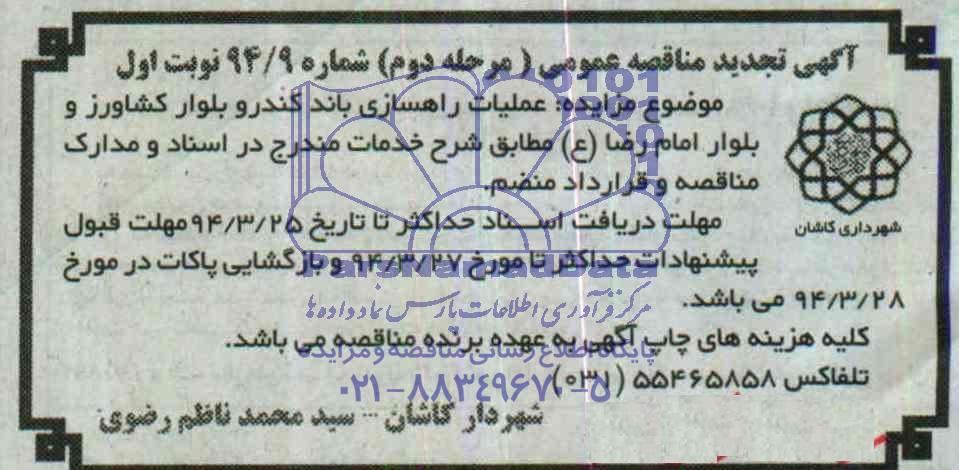 آگهی تجدید مناقصه عمومی (مرحله دوم) شماره ۹۴/۹ نوبت اول
موضوع مزایده: عملیات راهسازی باند کندرو بلوار کشاورز و
بلوار امام رضا (ع) مطابق شرح خدمات مندرج در اسناد و مدارک
مناقصه و قرارداد منضم.
شهرداری کاشان
مهلت دریافت اسناد حداکثر تا تاریخ ۹۴/۳/۲۵ مهلت قبول
پیشنهادات حداکثر تا مورخ ۹۴/۳/۲۷ و بازگشایی پاکات در مورخ
۹۴/۳/۲۸ می باشد.
کلیه هزینه های چاپ آگهی به عهده برنده مناقصه می باشد.
تلفاکس ۵۵۴۶۵۸۵۸ (۰۳۱)
شهردار کاشان - سید محمد ناظم رضوی
ParsNamadData
مرکز فرآوری اطلاعات پارس نماد داده ها
پایگاه اطلاع رسانی مناقصه و مزایده
۰۲۱-۸۸۳۴۹۶۷۰-۵